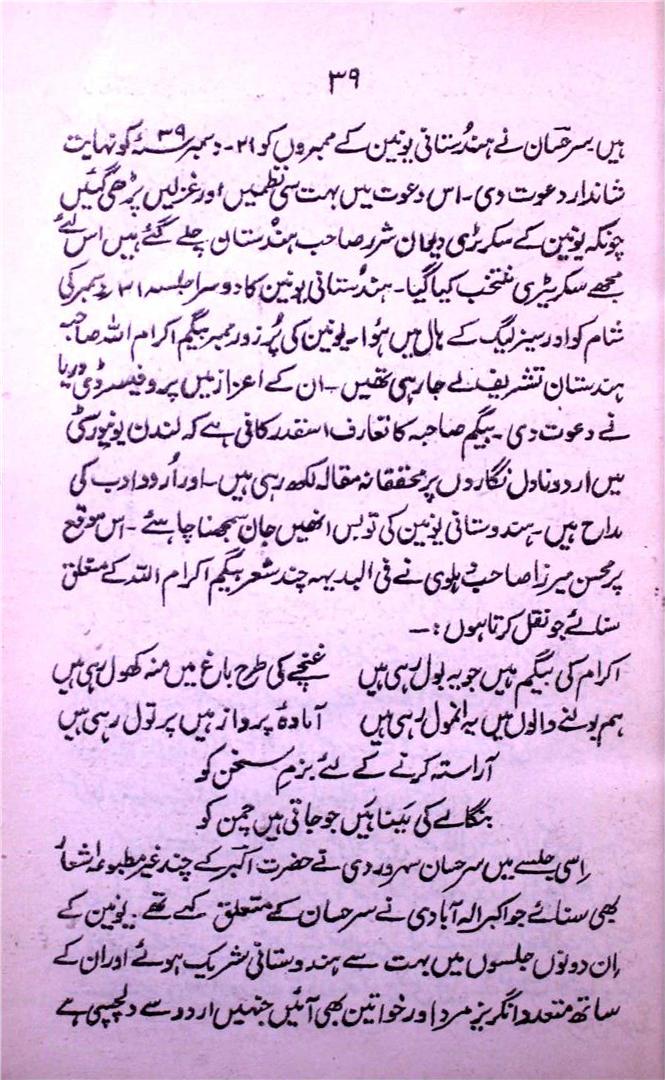 ۳۹
ہیں سرحسان نے ہندُستانی یونین کے ممبروں کو ۲۱۔ دسمبر ۳۹ء کو نہایت
شاندار دعوت دی۔ اس دعوت میں بہت سی نظمیں اور غزلیں پڑھی گئیں
چونکہ یونین کے سکریٹری دیوان شرر صاحب ہندُستان چلے گئے ہیں اس لئے
مجھے سکریٹری منتخب کیا گیا۔ ہندُستانی یونین کا دوسرا جلسہ ۳۱ دسمبر کی
شام کو اورسیز لیگ کے ہال میں ہُوا۔ یونین کی پُر زور ممبر بیگم اکرام اللہ صاحبہ
ہندستان تشریف لے جا رہی تھیں۔ ان کے اعزاز میں پروفیسر ڈی دریا
نے دعوت دی۔ بیگم صاحبہ کا تعارف اسقدر کافی ہے کہ لندن یونیورسٹی
میں اردو ناول نگاروں پر محققانہ مقالہ لکھ رہی ہیں۔ اور اُردو ادب کی
مداح ہیں۔ ہندوستانی یونین کی تو بس انھیں جان سمجھنا چاہئے۔ اس موقع
پر محسن میرزا صاحب دہلوی نے فی البدیہہ چند شعر بیگم اکرام اللہ کے متعلق
سنائے جو نقل کرتا ہوں :۔
اکرام کی بیگم ہیں جو یہ بول رہی ہیں غنچے کی طرح باغ میں منہ کھول رہی ہیں
ہم بولنے والوں میں یہ انمول رہی ہیں آمادہٴ پرواز ہیں پر تول رہی ہیں
آراستہ کرنے کے لئے بزمِ سخن کو
بنگالے کی مَینا ہَیں جو جاتی ہیں چمن کو
اِسی جلسے میں سرحسان سہروردی نے حضرت اکبر کے چند غیر مطبوعہ اشعار
بھی سنائے جو اکبر الہ آبادی نے سرحسان کے متعلق کہے تھے۔ یونین کے
اِن دونوں جلسوں میں بہت سے ہندوستانی شریک ہوئے اور ان کے
ساتھ متعدد انگریز مرد اور خواتین بھی آئیں جنہیں اردو سے دلچسپی ہے